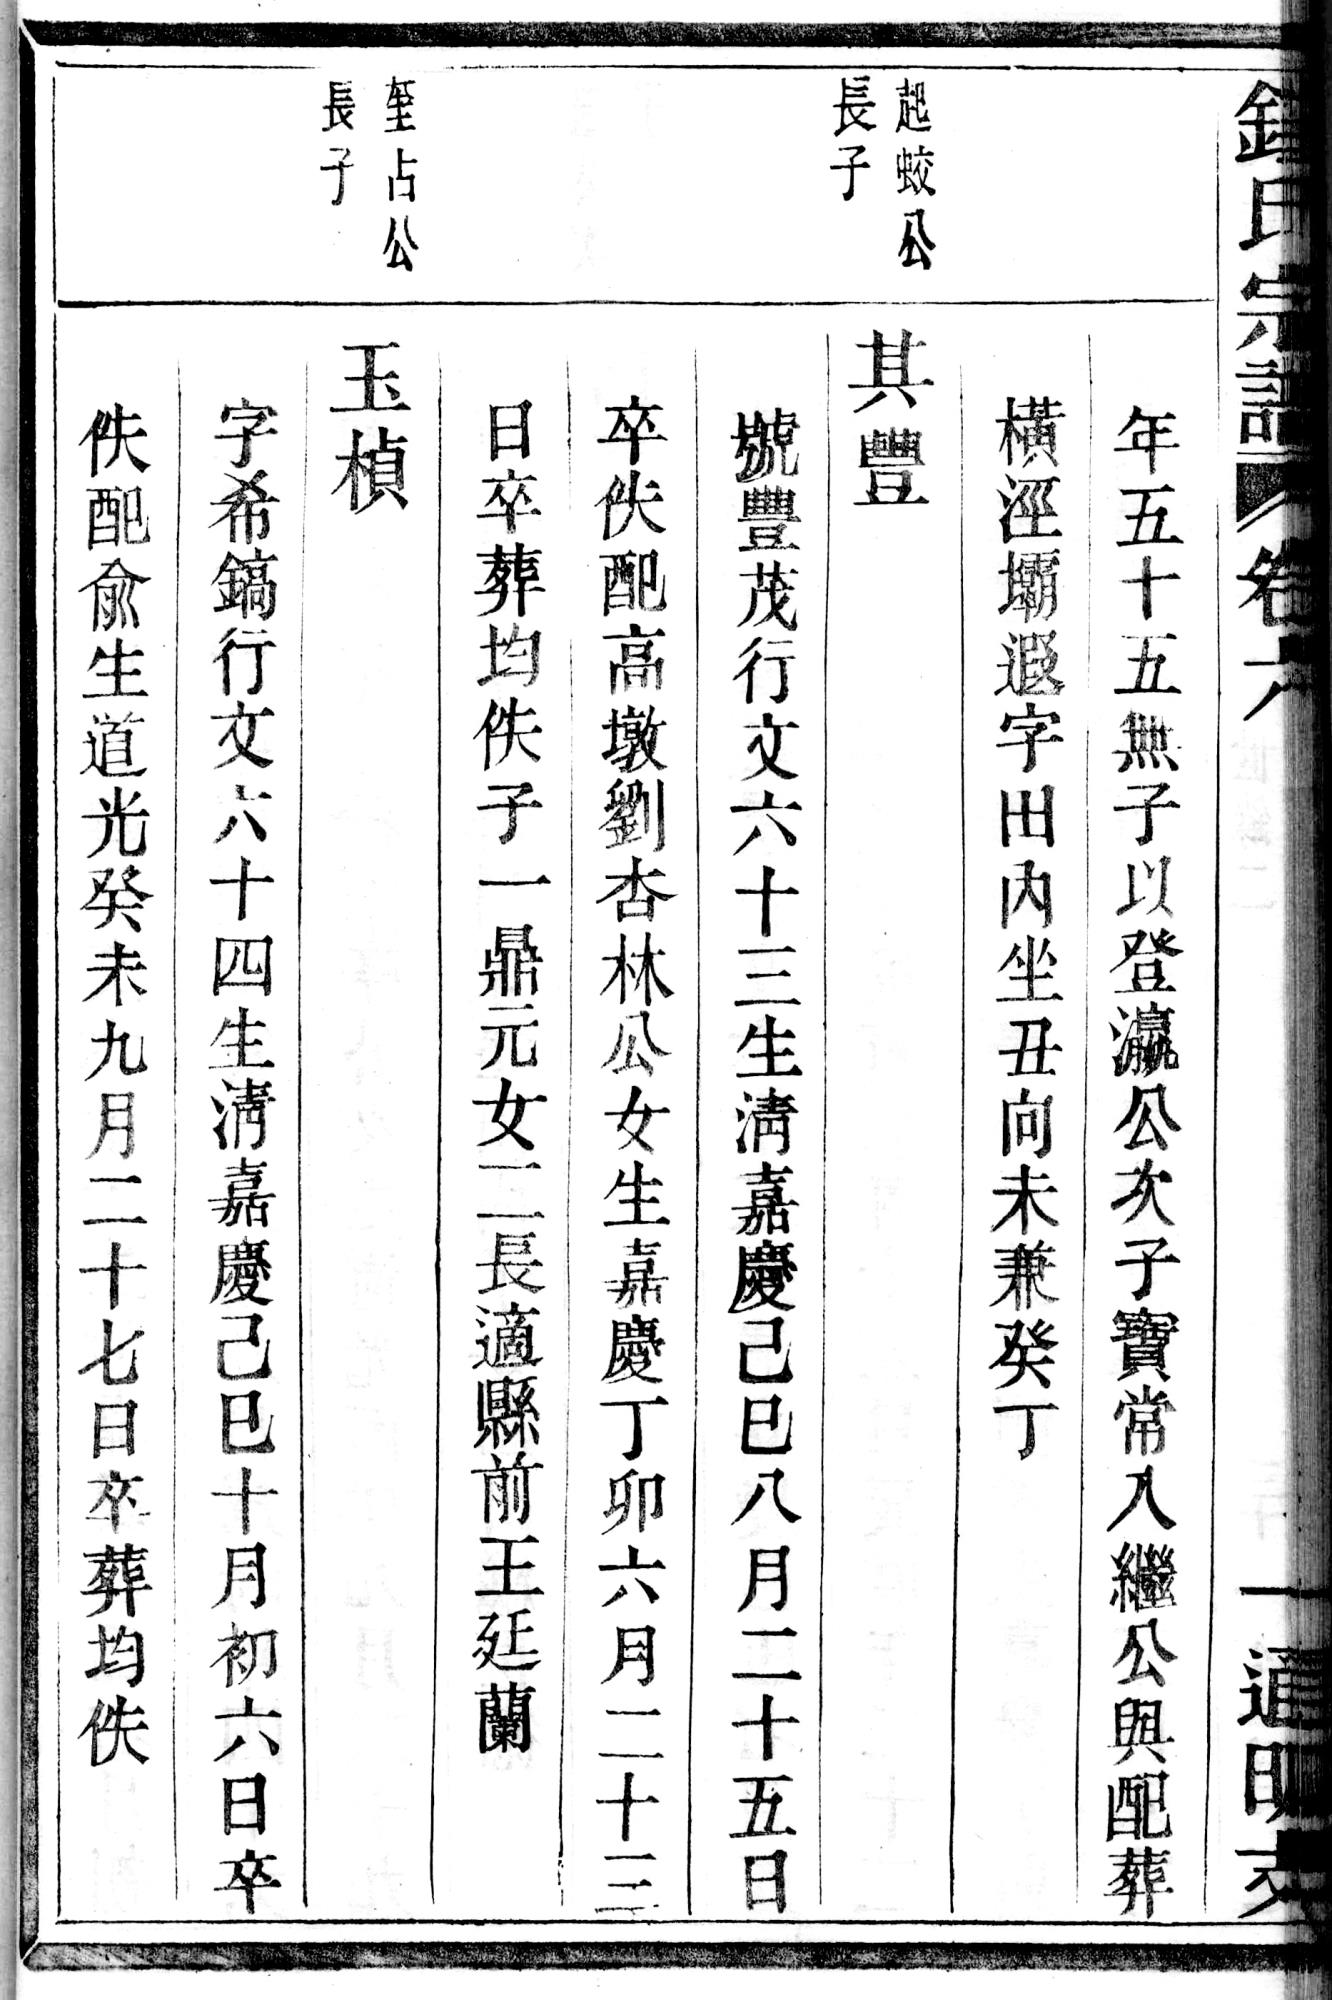 氏宗譜 卷六 一 通明支
年五十五無子以登瀛公次子寶常入繼公與配葬
橫涇壩遐字田內坐丑向未兼癸丁
起蛟公
長子
其豐
號豐茂行文六十三生清嘉慶己巳八月二十五日
卒佚配高墩劉杏林公女生嘉慶丁卯六月二十三
日卒葬均佚子一鼎元女二長適縣前王延蘭
占公
長子
玉楨
字希鎬行文六十四生清嘉慶己巳十月初六日卒
佚配俞生道光癸未九月二十七日卒葬均佚